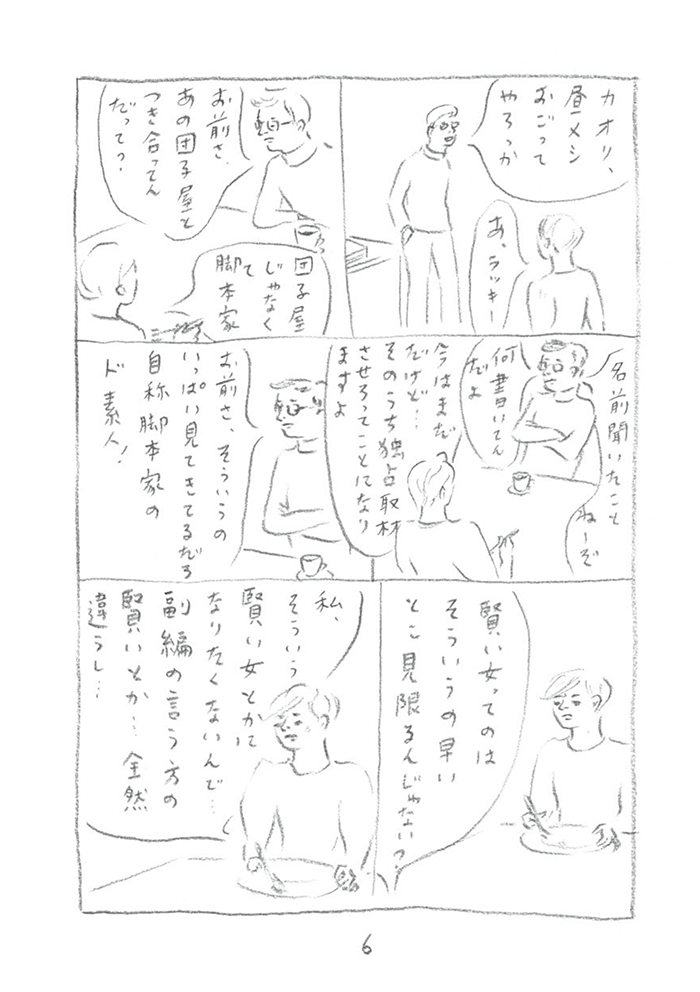 カオリ、
昼メシ
おごって
やろっか
あ、ラッキー
お前さ、
あの団子屋と
つき合ってん
だって?
団子屋
じゃなく
て
脚本家
名前聞いたこと
ねーぞ
何書いてん
だよ
今はまだ
だけど…
そのうち独占取材
させろってことになり
ますよ
お前さ、そういうの
いっぱい見てきてるだろ
自称脚本家の
ド素人!
賢い女ってのは
そういうの早い
とこ見限るんじゃない?
私、
そういう
賢い女とかに
なりたくないんで…
副編の言う方の
賢いとか…全然
違うし…
6